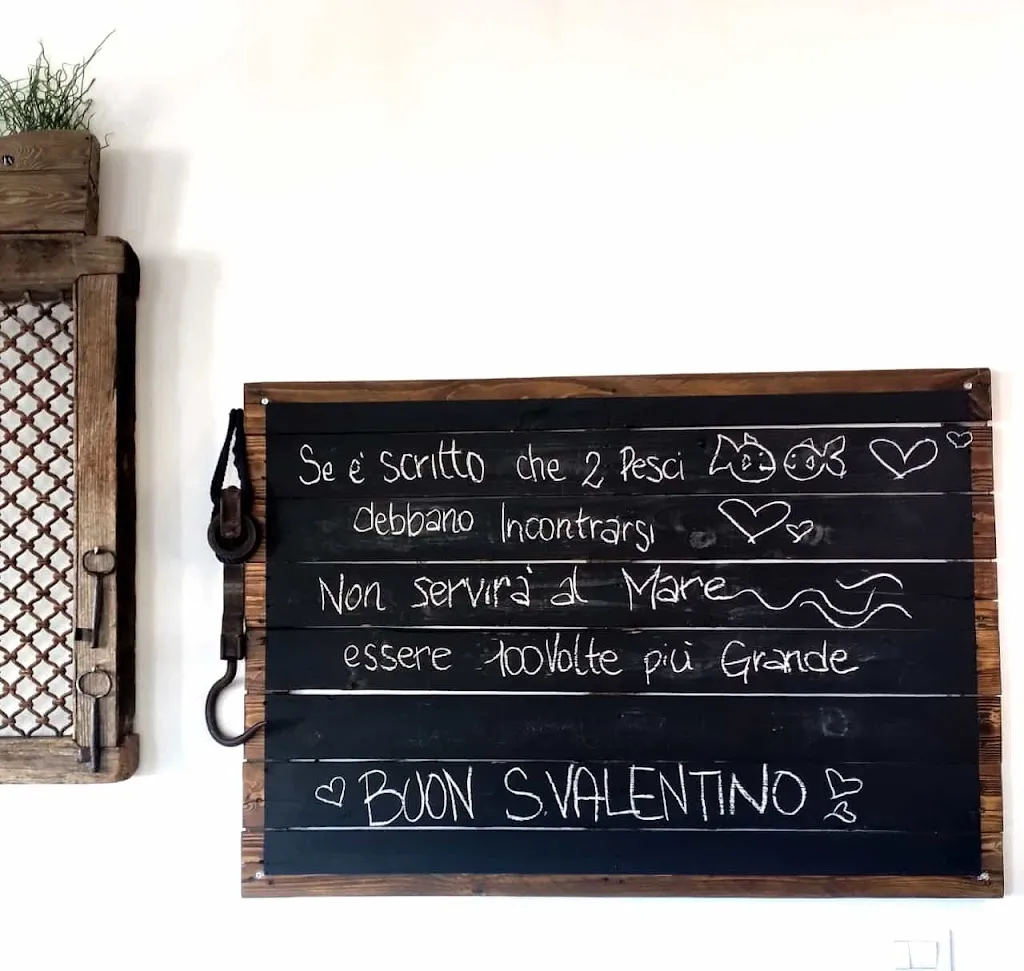 Se è scritto che 2 Pesci
debbano Incontrarsi
Non servirà al Mare
essere 100Volte più Grande
BUON S.VALENTINO